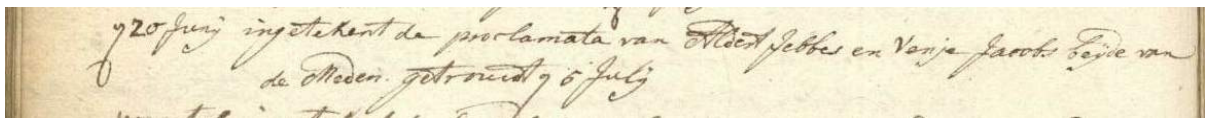 g 20 Junij ingetekent de proclamata van Aldert Jebbes en Venje Jacobs beijde van
de Meden. getrouwdt g 5 Julij